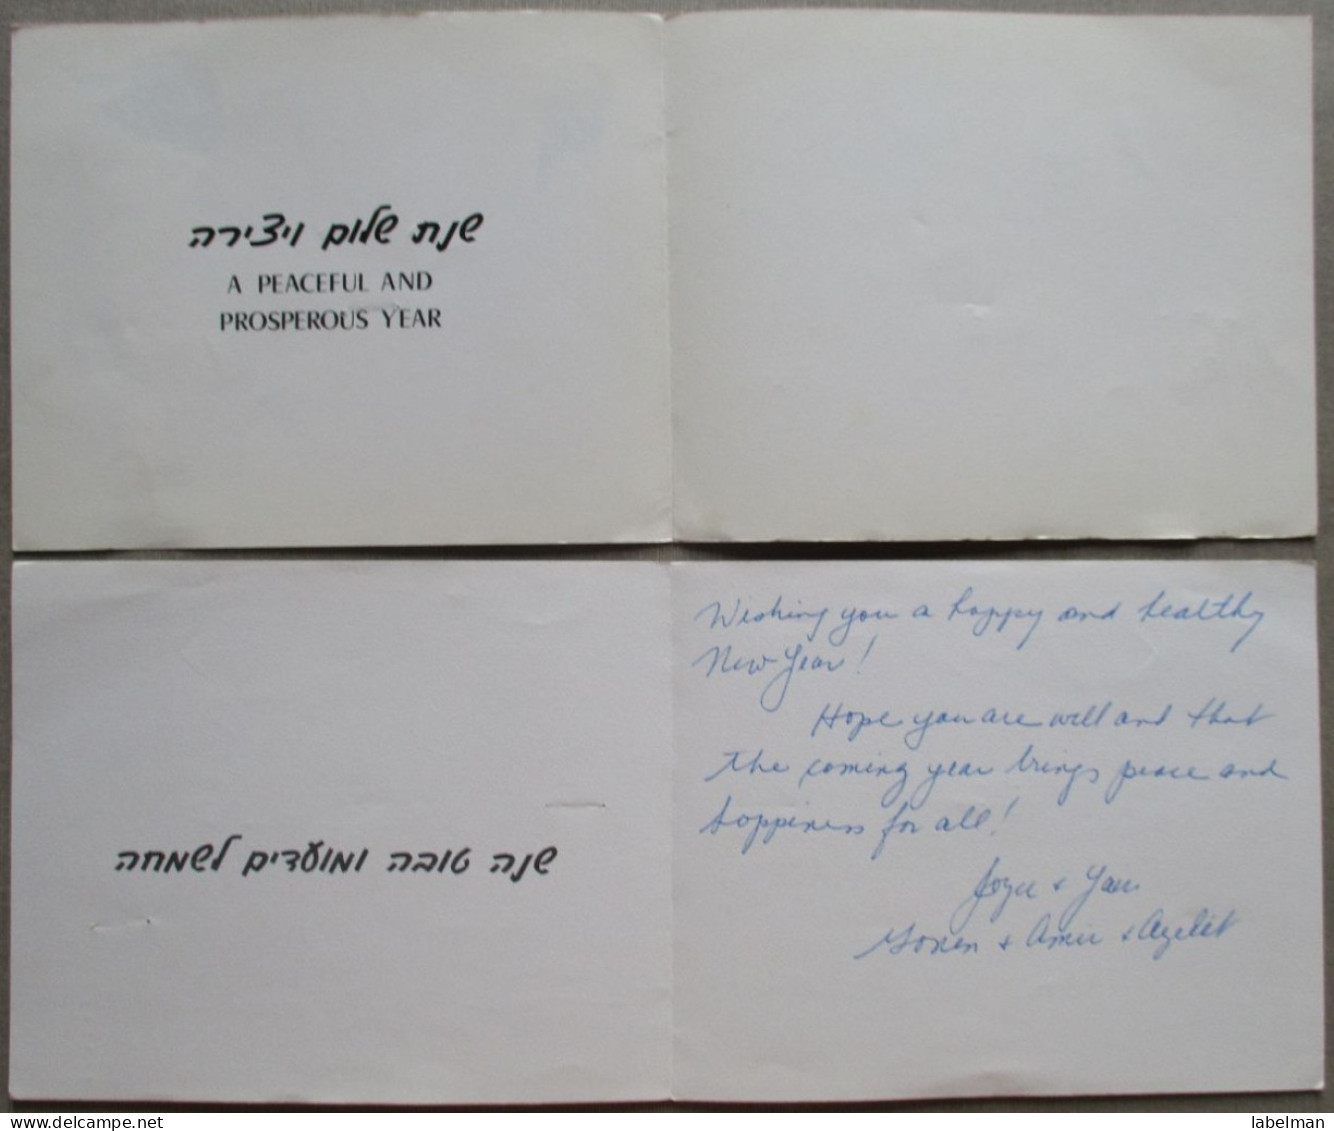 שנת שלום ויצירה
A PEACEFUL AND
PROSPEROUS YEAR
שנה טובה ומועדים לשמחה
Wishing you a happy and healthy
New Year!
Hope you are well and that
the coming year brings peace and
happiness for all!
Joyce &
& Amir &
labelman